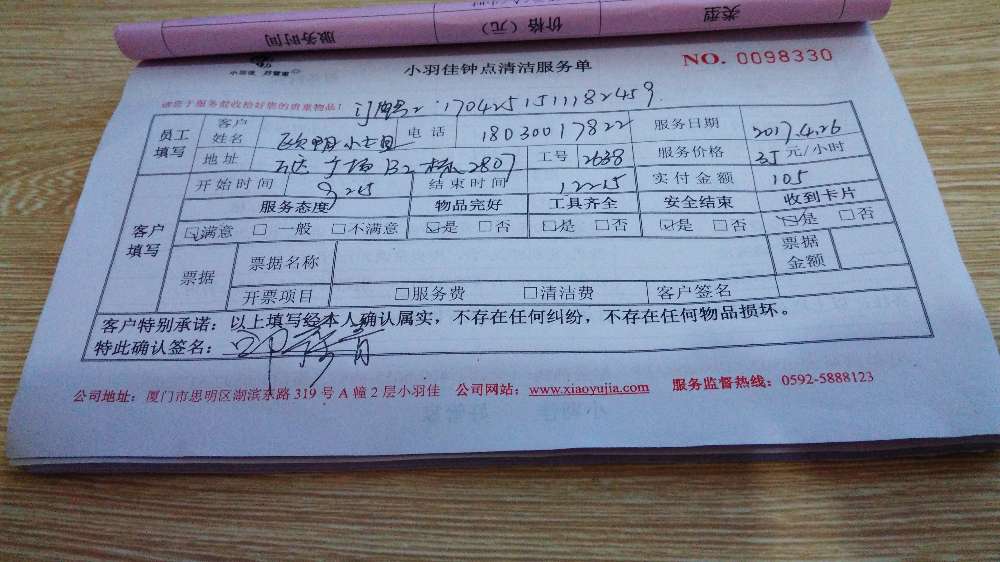 服务时间 价格（元） 类型
小羽佳钟点清洁服务单 NO. 0098330
小羽佳 好管家
请您于服务前收拾好您的贵重物品！ 订单号: 1704251511182459
员工填写 客户姓名 欧阳小七 电话 18030017822 服务日期 2017.4.26
地址 万达广场B2栋2807 工号 2638 服务价格 35元/小时
开始时间 9:15 结束时间 12:15 实付金额 105
客户填写 服务态度 物品完好 工具齐全 安全结束 收到卡片
☑满意 □一般 □不满意 ☑是 □否 ☑是 □否 ☑是 □否 ☑是 □否
票据 票据名称 票据金额
开票项目 □服务费 □清洁费 客户签名
客户特别承诺：以上填写经本人确认属实，不存在任何纠纷，不存在任何物品损坏。
特此确认签名：
公司地址：厦门市思明区湖滨东路 319 号 A 幢 2 层小羽佳 公司网站：www.xiaoyujia.com 服务监督热线：0592-5888123